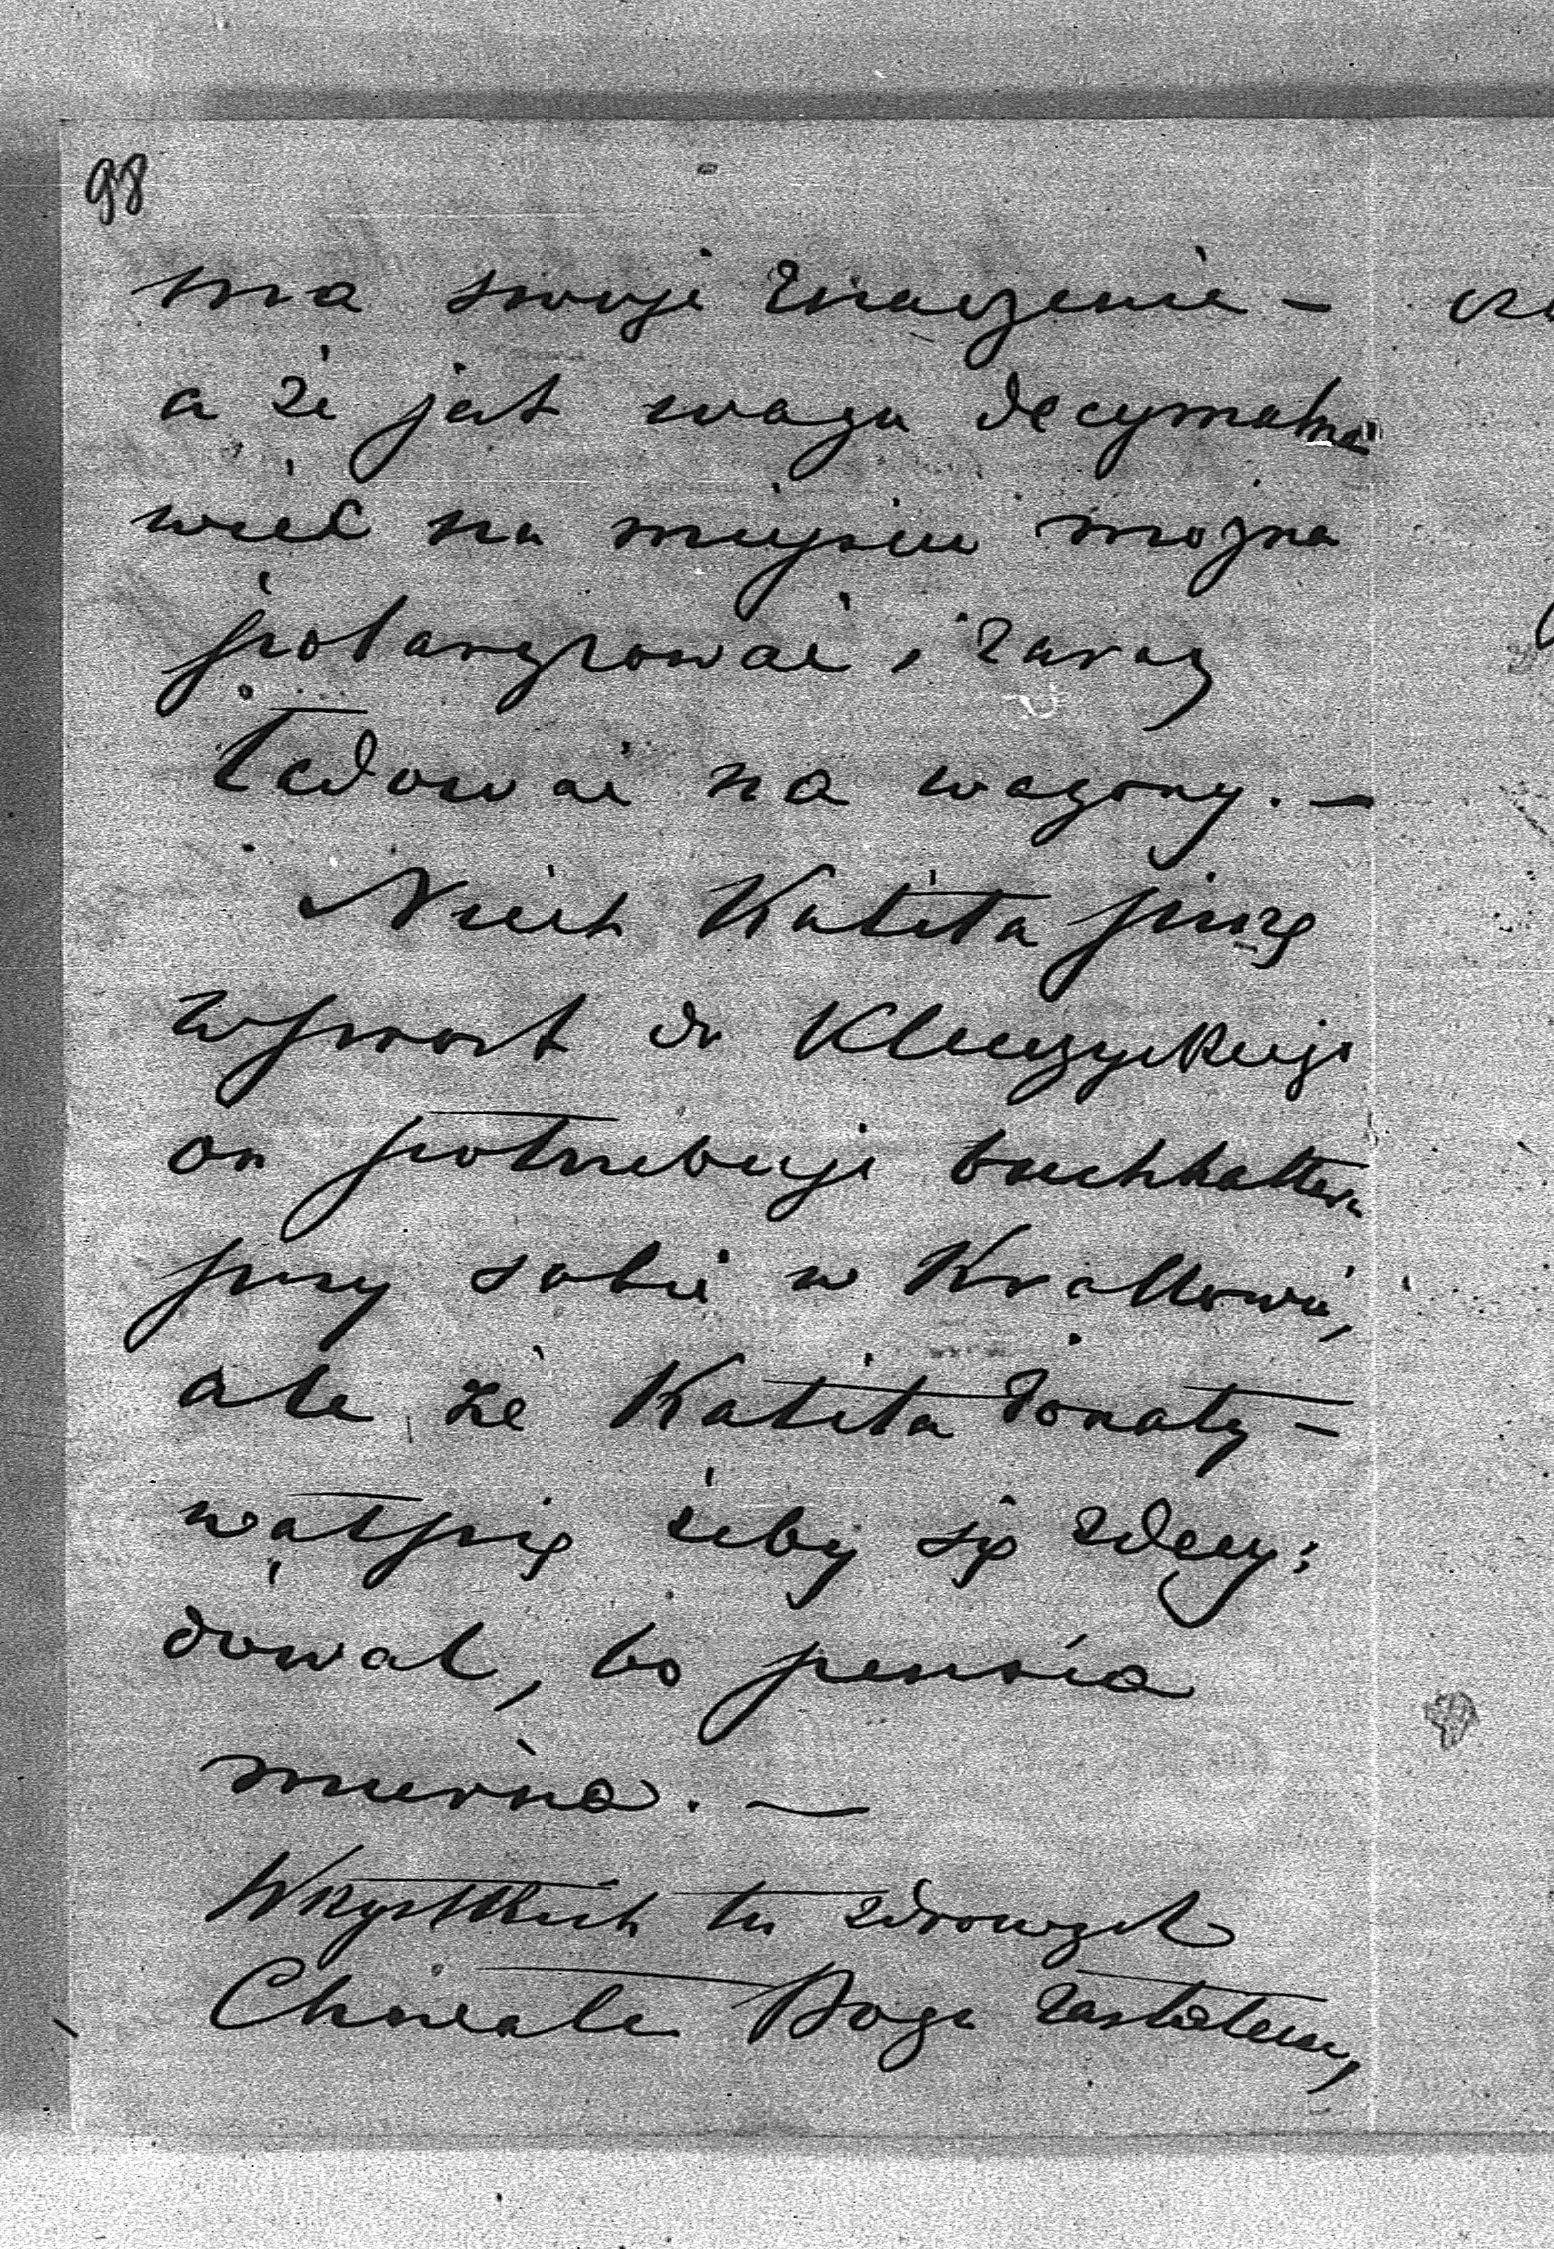 98
ma swoje znaczenie –
a że jest waga decymalna
więc na miejscu można
potaryfować i zaraz
ładować na wagony. –
Niech Kalita pisze
wprost do Kluczyckiego
on potrzebuje buchhaltera
przy sobie w Krakowie,
ale że Kalita żonaty –
wątpię żeby się zdecy:
dował, bo pensia
mierna. –
Wszystkich tu zdrowych
Chwała Bogu zastałem,